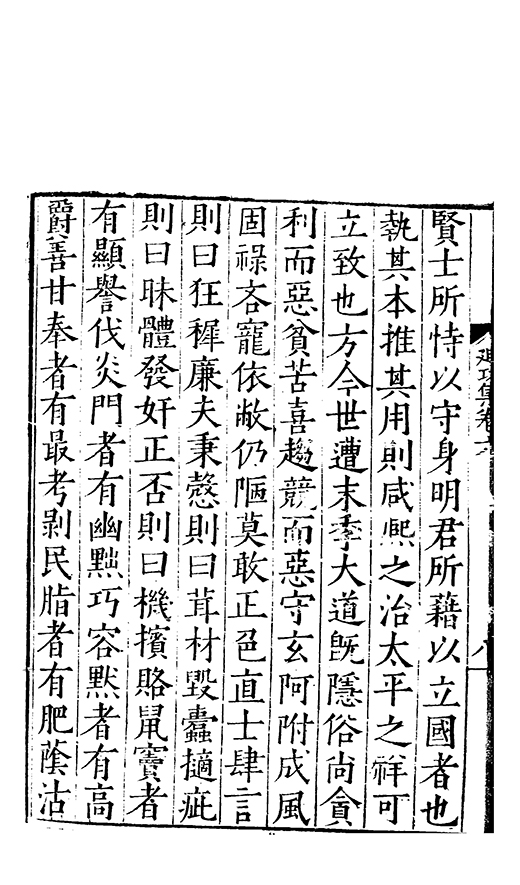 賢士所恃以守身明君所藉以立國者也
執其本推其用則咸熈之治太平之祥可
立致也方今世遭末季大道旣隱俗尚貪
利而惡貧苦喜趨競而惡守玄阿附成風
固祿吝寵依敝仍陋莫敢正色直士肆言
則曰狂穉廉夫秉慤則曰茸材毀蠹擿疵
則曰昧體發奸正否則曰機擯賂鼠竇者
有顯譽伐炎門者有幽黜巧容默者有高
爵善甘奉者有最考剝民脂者有肥蔭沽